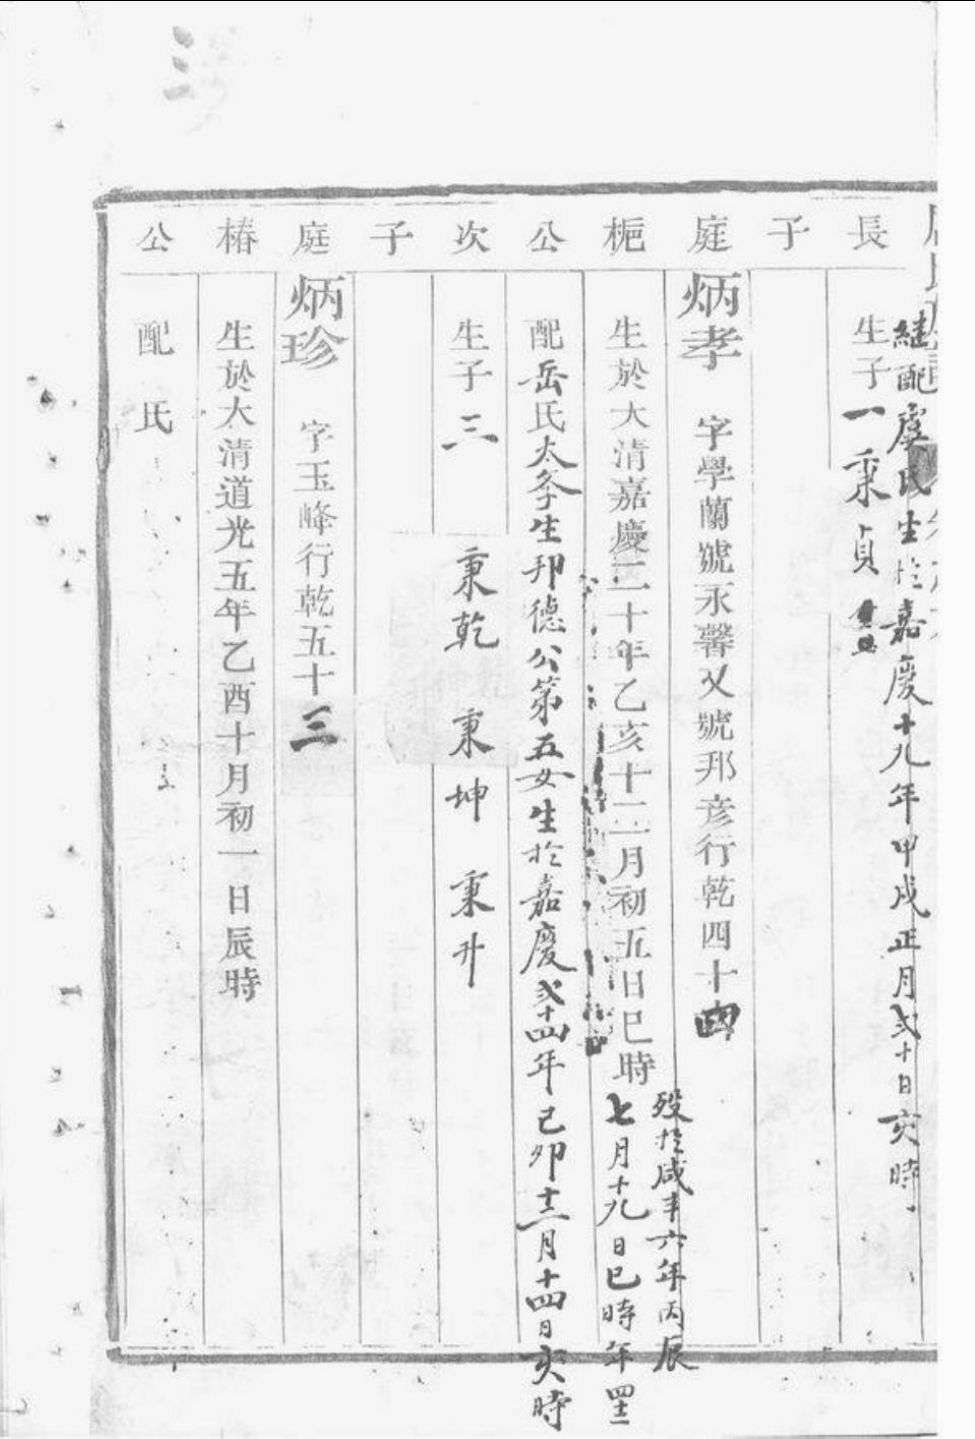 繼配虞氏生於嘉慶十九年甲戌正月弍十日亥時
長 生子一秉貞
子
庭 炳孝 字學蘭號永馨又號邦彥行乾四十四
歿於咸丰六年丙辰
梔 生於大清嘉慶二十年乙亥十二月初五日巳時 七月十九日巳時年四十二
公 配岳氏太孝生邦德公第五女生於嘉慶弍十四年己卯十二月十四日亥時
次 生子三 秉乾 秉坤 秉升
子
庭 炳珍 字玉峰行乾五十三
椿 生於大清道光五年乙酉十月初一日辰時
公 配 氏